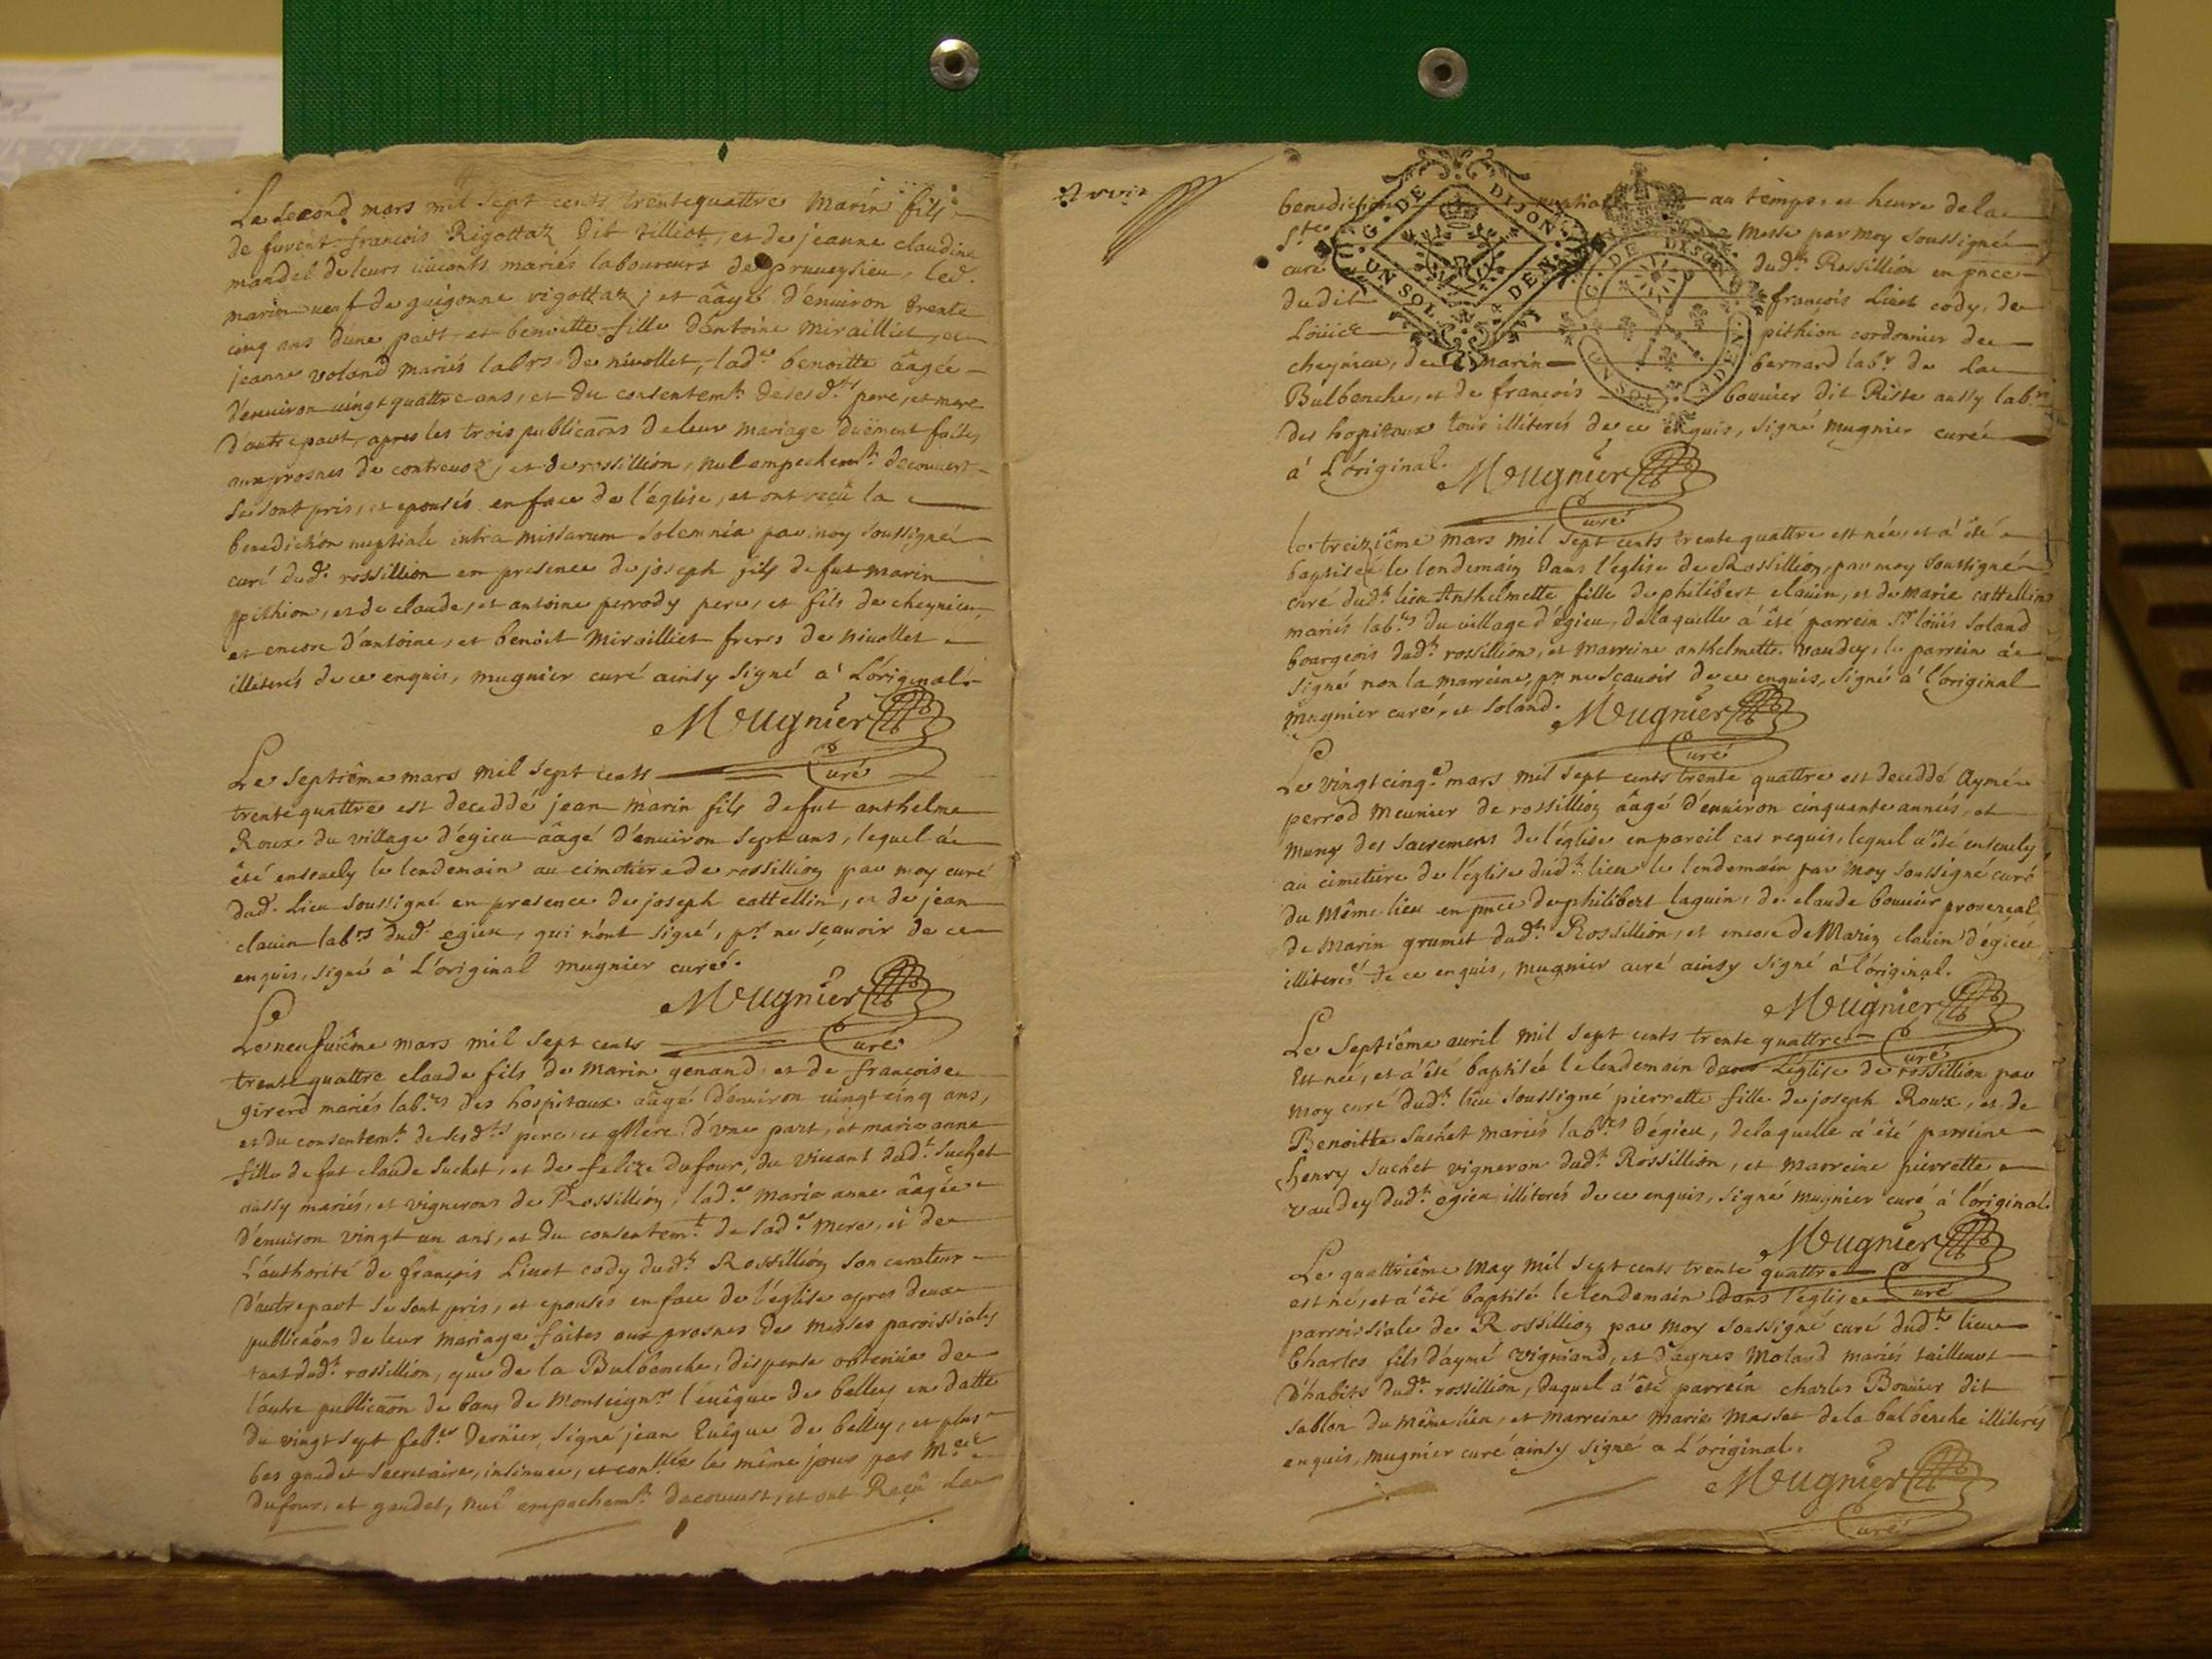 Le second mars mil sept cents trentequattre marin fils
de furent francois Rigottaz dit tilliot, et de jeanne claudine
mandel de leurs vivants mariés laboureurs de pruveysieu, led.
marin veuf de guigonne rigottaz, et âagé d'environ trente
cinq ans d'une part, et benoitte fille d'antoine mirailliet, et
jeanne voland mariés labrs de nivollet, lade. benoitte âagée
d'environ vingtquattre ans, et du consentemt. de sesdts. pere, et mere
d'autre part, apres les trois publicaõns de leur mariage duëment faites
aux prosnes de contrevoz, et de rossillion, nul empechemt. decouvert
se sont pris, et epousés en face de l'église, et ont reçû la
benediction nuptiale intra missarum solemnia par moy soussigné
curé dud. rossillion en presence de joseph fils de fut marin
pithion, et de claude, et antoine perrody pere, et fils de cheynieu,
et encore d'antoine, et benoit mirailliet freres de nivollet
illiterés de ce enquis, mugnier curé ainsy signé a' L'original.
Mugnier
Curé
Le septiême mars mil sept cents
trente quattre est deceddé jean marin fils de fut anthelme
Roux du village d'égieu âagé d'environ sept ans, lequel a
été ensevely le lendemain au cimetiere de rossillion par moy curé
dud. Lieu soussigné en presence de joseph cattellin, et de jean
clavin labrs dud. egieu, qui n'ont signé, pr. ne sçavoir de ce
enquis, signé a' L'original mugnier curé.
Mugnier
Curé
Le neufviême mars mil sept cents
trente quattre claude fils de marin genand, et de françoise
girerd mariés labrs. des hospitaux aâgé d'environ vingt cinq ans,
et du consentemt. de sesdts pere, et Mere d'vne part, et marie anne
fille de fut claude Suchet, et de felize dufour, du vivant dudt. Suchet
aussy mariés, et vignerons de Rossillion, lade. marie anne âagée
d'environ vingt un ans, et du consentemt. de sade. mere, et de
L'authorité de françois Livet cody dudt. Rossillion son curateur
d'autre part se sont pris, et epousés en face de l'église apres deux
publicaõns de leur mariage faites aux prosnes des messes paroissiales
tant dudt. rossillion, que de la Bulbenche, dispense obtenüe de
l'autre publicaõn de bans de Monseignr. l'euêque de belley en datte
du vingt sept febr. dernier, signé jean Euêque de belley, et plus
bas gaudet secretaire, insinuee, et conllée le même jour par Mes
dufour, et gaudet, nul empechemt. decouvert, et ont Reçû La
benediction nuptiale au temps, et heure de la
Ste. messe par moy soussigné
curé dudt. Rossillion en pnce
dudit françois Livet cody, de
Loüise pithion cordonnier de
cheynieu, de marin bernard labr. de La
Bulbenche, et de francois bouvier dit Riste aussy labr.
des hopitaux tous illiterés de ce enquis, signé mugnier curé
a' L'original. Mugnier
Curé
G. DE DIJON
UN SOL 4 DEN.
G. DE DIJON
UN SOL 4 DEN.
le treiziême mars mil sept cents trente quattre est née, et a' été
baptisée le lendemain dans l'église de Rossillion, par moy soussigné
curé dudt. lieu Anthelmette fille de philibert clavin, et de marie cattellin
mariés labrs. du village d'égieu, de laquelle a' êté parrein Sr. loüis Soland
bourgeois dudt. rossillion, et marreine anthelmette vaudey, le parrein a
signé non la marreine, pr. ne sçavoir de ce enquis, signé a' l'original
mugnier curé, et Soland. Mugnier
Curé
Le vingtcinqe. mars mil sept cents trente quattre est deceddé Aymé
perrod meunier de rossillion âagé d'environ cinquante années, et
muny des sacremens de l'église en pareil cas requis, lequel a' êté ensevely
au cimetiere de l'église dudt. lieu le lendemain par moy soussigné curé
du Même lieu en pnce de philibert laguin, de claude bouvier provençal,
de marin grumet dudt. Rossillion, et encore de Marin clavin d'égieu,
illiterés de ce enquis, mugnier curé ainsy signé a' l'original.
Mugnier
Curé
Le septiême avril mil sept cents trente quattre
Est née, et a' été baptisée le lendemain dans L'église de rossillion par
moy curé dudt. lieu soussigné pierrette fille de joseph Roux, et de
Benoitte Suchet mariés labrs d'égieu, de laquelle a' été parrein
henry Suchet vigneron dudt. Rossillion, et marreine pierrette
vaudey dudt. egieu illiterés de ce enquis, signé mugnier curé a' l'original.
Mugnier
Curé
Le quattriême May mil sept cents trente quattre
est né, et a' êté baptisé le lendemain dans l'église
parroissiale de Rossillion par moy soussigné curé dudt. lieu
Charles fils d'aymé vigniand, et d'agnes Moland mariés tailleurs
d'habits dudt. rossillion, duquel a' êté parrein charles Bouvier dit
sablon du même lieu, et marreine marie masset de la bulbenche illiterés
enquis, mugnier curé ainsy signé a L'original.
Mugnier
Curé